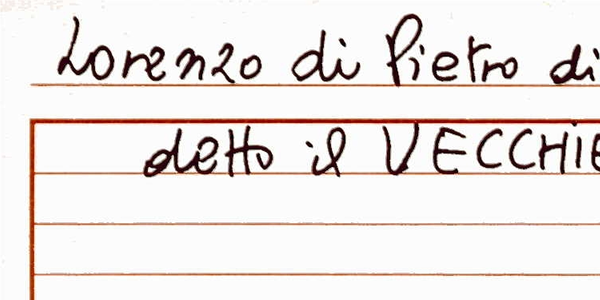 Lorenzo di Pietro di
detto il VECCHIE